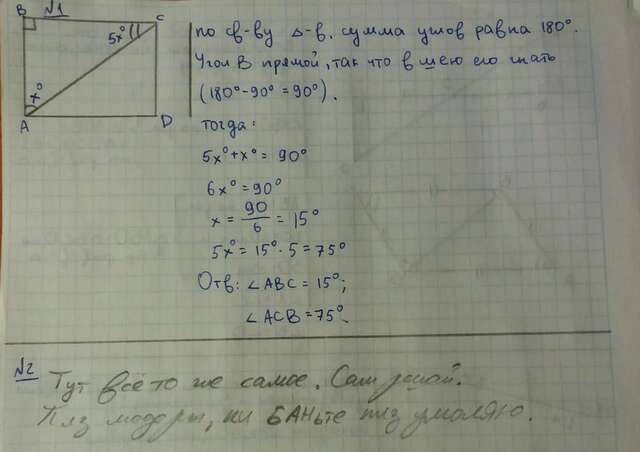 №1
B
C
5x°
x°
A
D
по св-ву Δ-в. сумма углов равна 180°.
Угол B прямой, так что в шею его гнать
(180°-90°=90°).
тогда:
5x°+x°= 90°
6x°=90°
x = 90/6 = 15°
5x°= 15°·5=75°
Отв: ∠ABC = 15°;
∠ACB=75°.
№2
Тут всё то же самое. Сам решай.
Плз модеры, ни БАНьте плз умоляю.